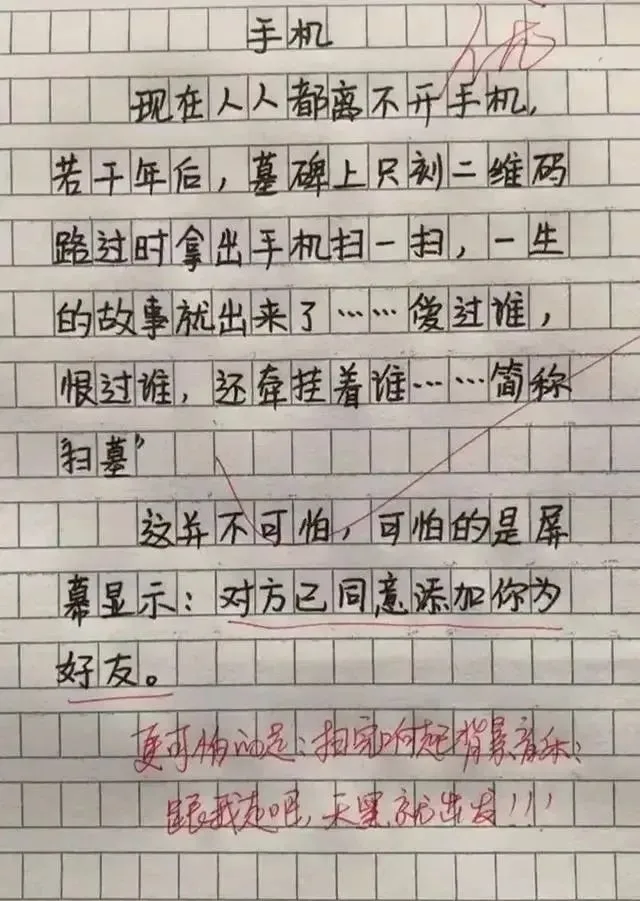 手机
现在人人都离不开手机,
若干年后，墓碑上只刻二维码
路过时拿出手机扫一扫，一生
的故事就出来了……爱过谁，
恨过谁，还牵挂着谁……简称
“扫墓”
这并不可怕，可怕的是屏
幕显示：对方已同意添加你为
好友。
更可怕的是：扫完响起背景音乐：
跟我走吧，天黑就出发!!!